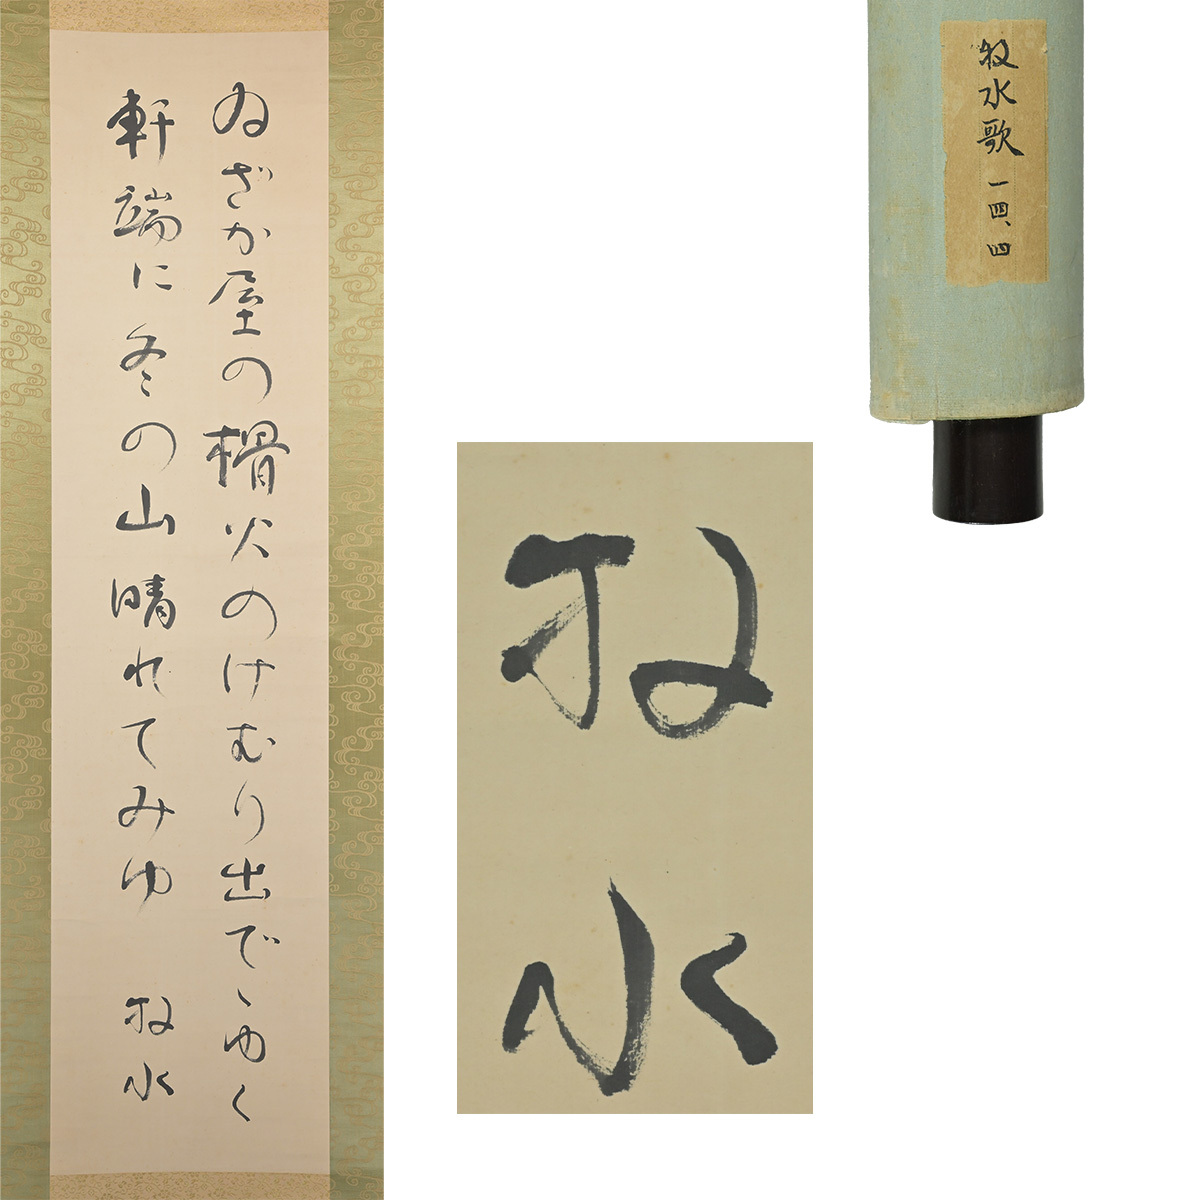 ゐざか屋の榾火のけむり出でゝゆく
軒端に冬の山晴れてみゆ
牧水
牧水
牧水歌 一四、四